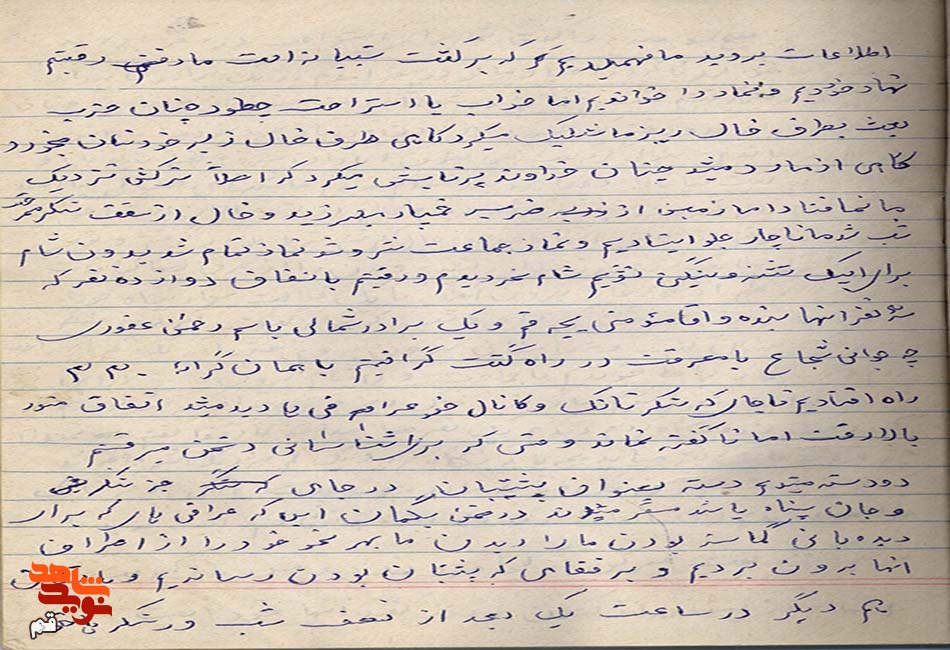 اطلاعات بردید ما فهمیدیم که برگشت رفتیم
نهار خوردیم و نماد را خواندیم اما خواب یا استراحت چطور چنان حزب
بعث بطرف خال ریز ما شلیک میکرد گاهی طرف خال ذیر خودشان میخورد و
گاهی از ما رد میشد چنان خداوند میکرد که اصلاً ترکش نزدیک
ما نمافتاد اما زمین از ضربه خمپاره میلرزید و خال از سقف سنگر
شب شد ما ناچار جلو ایستادیم و نماز جماعت شروع شد نماز تمام شد بدون شام
برای اینک تشنه و سنگین نشویم شام نخوردیم و رفتیم با تفاق دوازده نفر که
نفر انها بنده و اقا مؤمنی بچه قم و یک برادر شمالی باسم رحمن غفوری
چه جوانی شجاع با معرفت در راه گشت گرا گرفتیم با همان گراد
راه افتادیم تا جای که سنگر تانک و کانال خو عراقی ها دید میشد اتفاق
بالا رفت اما ناگفته نماند وقتی که برای شناسائی دشمن میرفتیم
دو دسته میشدیم دسته بعنوان پشتیبان در جای که جز سنگر
و جان پناه باشد مستقر میشدند در ضمن بگمان این که عراقی های که برای
دیده بانی گماشته بودن ما را دیدن ما بهر نحو خود را از اطراف
انها برون بردیم و برفقای که پشتبان بودن رساندیم و
هم دیگر در ساعت یک بعد از نصف شب در سنگر
نوید شاهد
قم